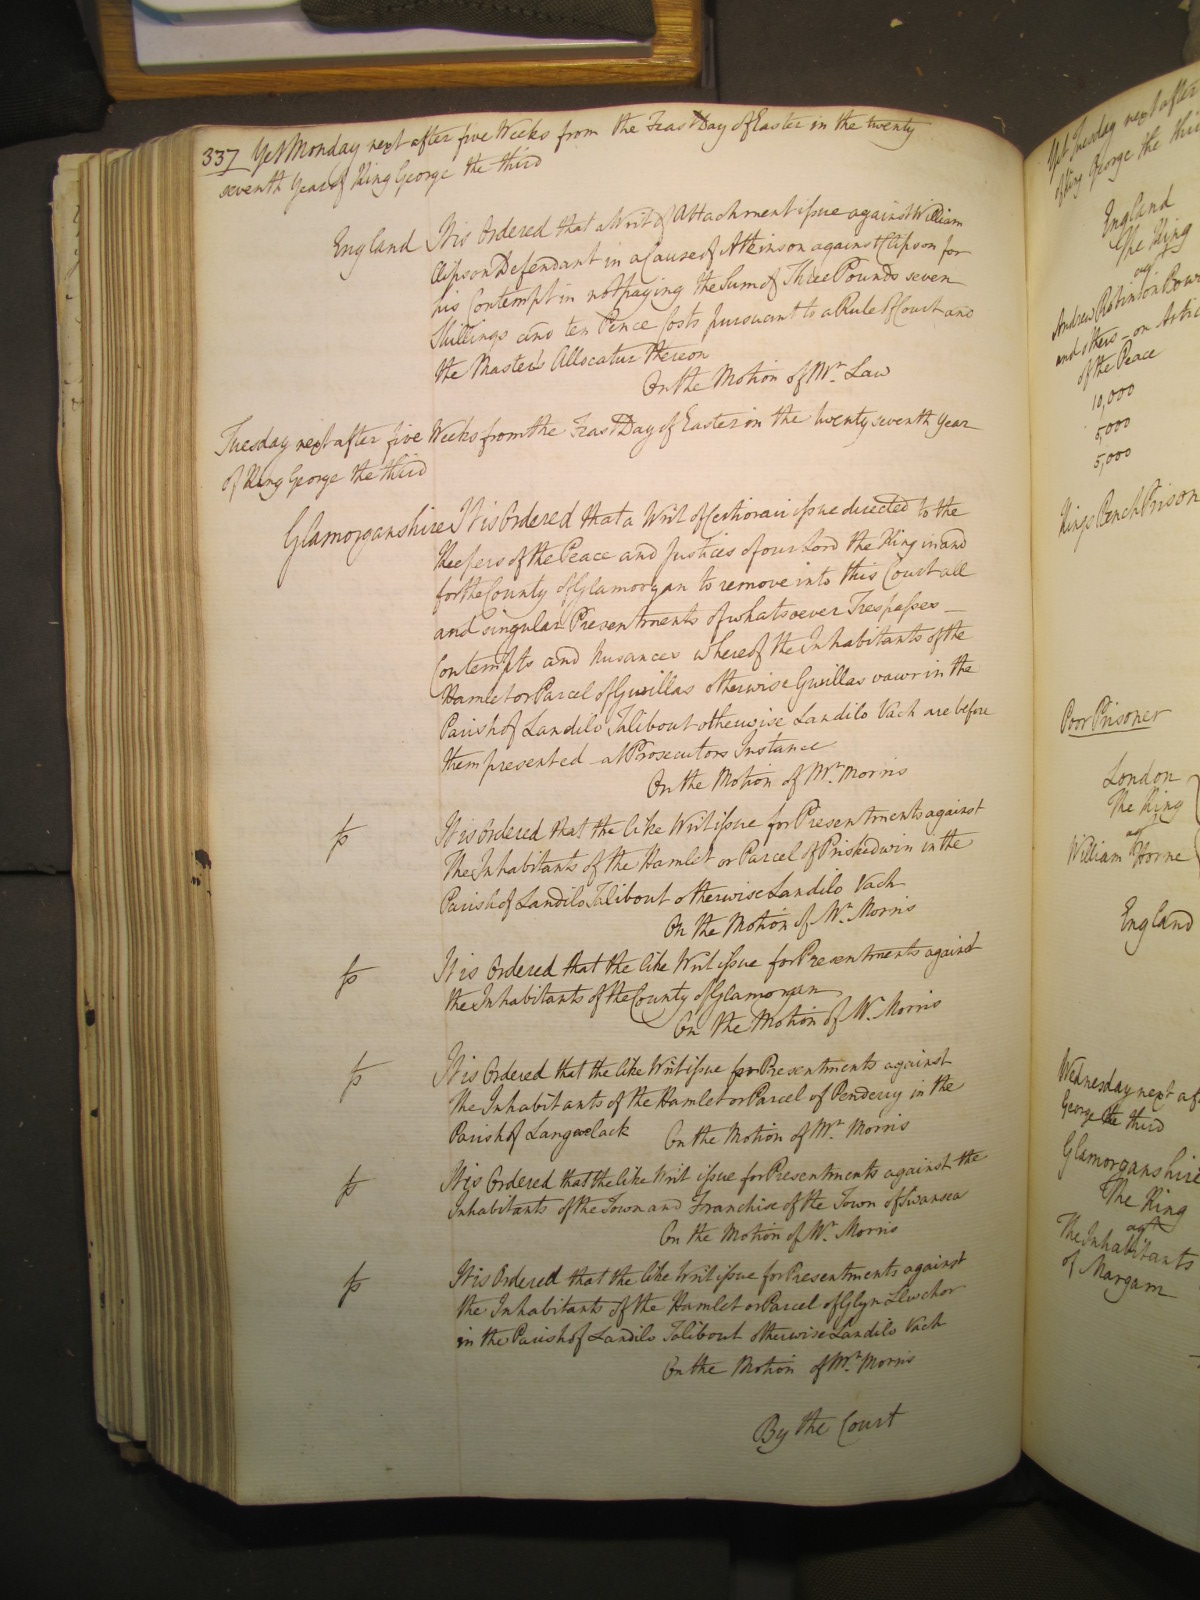 337 Yet Monday next after five Weeks from the Feast Day of Easter in the twenty
seventh Year of King George the third
England It is Ordered that a Writ of Attachment issue against William
Clipson Defendant in a Cause of Atkinson against Clipson for
his Contempt in not paying the Sum of Three Pounds seven
Shillings and ten Pence Costs pursuant to a Rule of Court and
the Master's Allocatur thereon
On the Motion of Mr. Law
Tuesday next after five Weeks from the Feast Day of Easter in the twenty seventh Year
of King George the third
Glamorganshire It is Ordered that a Writ of Certiorari issue directed to the
Keepers of the Peace and Justices of our Lord the King in and
for the County of Glamorgan to remove into this Court all
and singular Presentments of whatsoever Trespasses
Contempts and Nusances whereof the Inhabitants of the
Hamlet or Parcel of Gwillas otherwise Gwillas vawr in the
Parish of Landilo Talibout otherwise Landilo Vach are before
them presented at Prosecutors Instance
On the Motion of Mr. Morris
fs It is Ordered that the like Writ issue for Presentments against
The Inhabitants of the Hamlet or Parcel of Priskedwin in the
Parish of Landilo Talibout otherwise Landilo Vach
On the Motion of Mr. Morris
fs It is Ordered that the like Writ issue for Presentments against
the Inhabitants of the County of Glamorgan
On the Motion of Mr. Morris
fs It is Ordered that the like Writ issue for Presentments against
The Inhabitants of the Hamlet or Parcel of Penderry in the
Parish of Langwelack On the Motion of Mr. Morris
fs It is Ordered that the like Writ issue for Presentments against the
Inhabitants of the Town and Franchise of the Town of Swansea
On the Motion of Mr. Morris
fs It is Ordered that the like Writ issue for Presentments against
the Inhabitants of the Hamlet or Parcel of Glyn Llwchor
in the Parish of Landilo Talibout otherwise Landilo Vach
On the Motion of Mr. Morris
By the Court
Yet Tuesday next after
of King George the thi
England
The King
agt
Andrew Robinson Bow
and others on Artic
of the Peace
10,000
5,000
5,000
Kings Bench Prison
Poor Prisoner
London
The King
agt
William Horne
England
Wednesday next af
George the third
Glamorganshire
The King
agt
The Inhabitants
of Margam